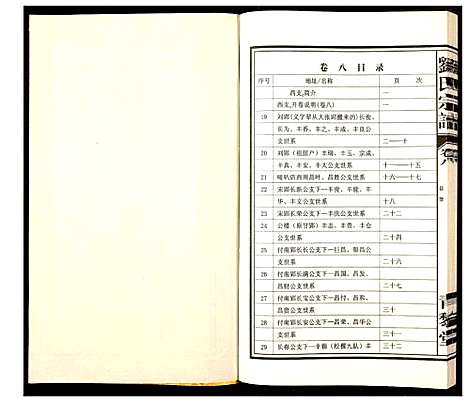 卷八目录
序号 地址/名称 页 次
西支,简介 一
西支,开卷说明(卷八) 一
19 刘郢(义字辈从大张郢搬来的)长俊、
长为、丰乔、丰之、丰成、丰良公
支世系 二—十
20 刘郢(祖居户)丰瑞、丰玉、宗成、
丰真、丰安、丰太公支世系 十一—十五
21 喇叭店西周昌时、昌胜公支世系 十六—十七
22 宋郢长新公支下一丰俊、丰能、丰
华、丰文公支世系 十八
23 宋郢长荣公支下一丰洪公支世系 二十二
24 公楼(原甘郢)丰志、丰贵、丰仓
公支世系 二十四
25 付南郢长长公支下一巨昌、恒昌公
支世系 二十六
26 付南郢长满公支下一昌国、昌发、
昌财公支世系 二十七
27 付南郢长宝公支下一昌付、昌和、
昌贵公支世系 三十
28 付南郢长安公支下一昌荣、昌华公
支世系 三十一
29 长春公支下一丰柳(松棵九队)丰 三十二
劉氏宗譜
卷八
目录